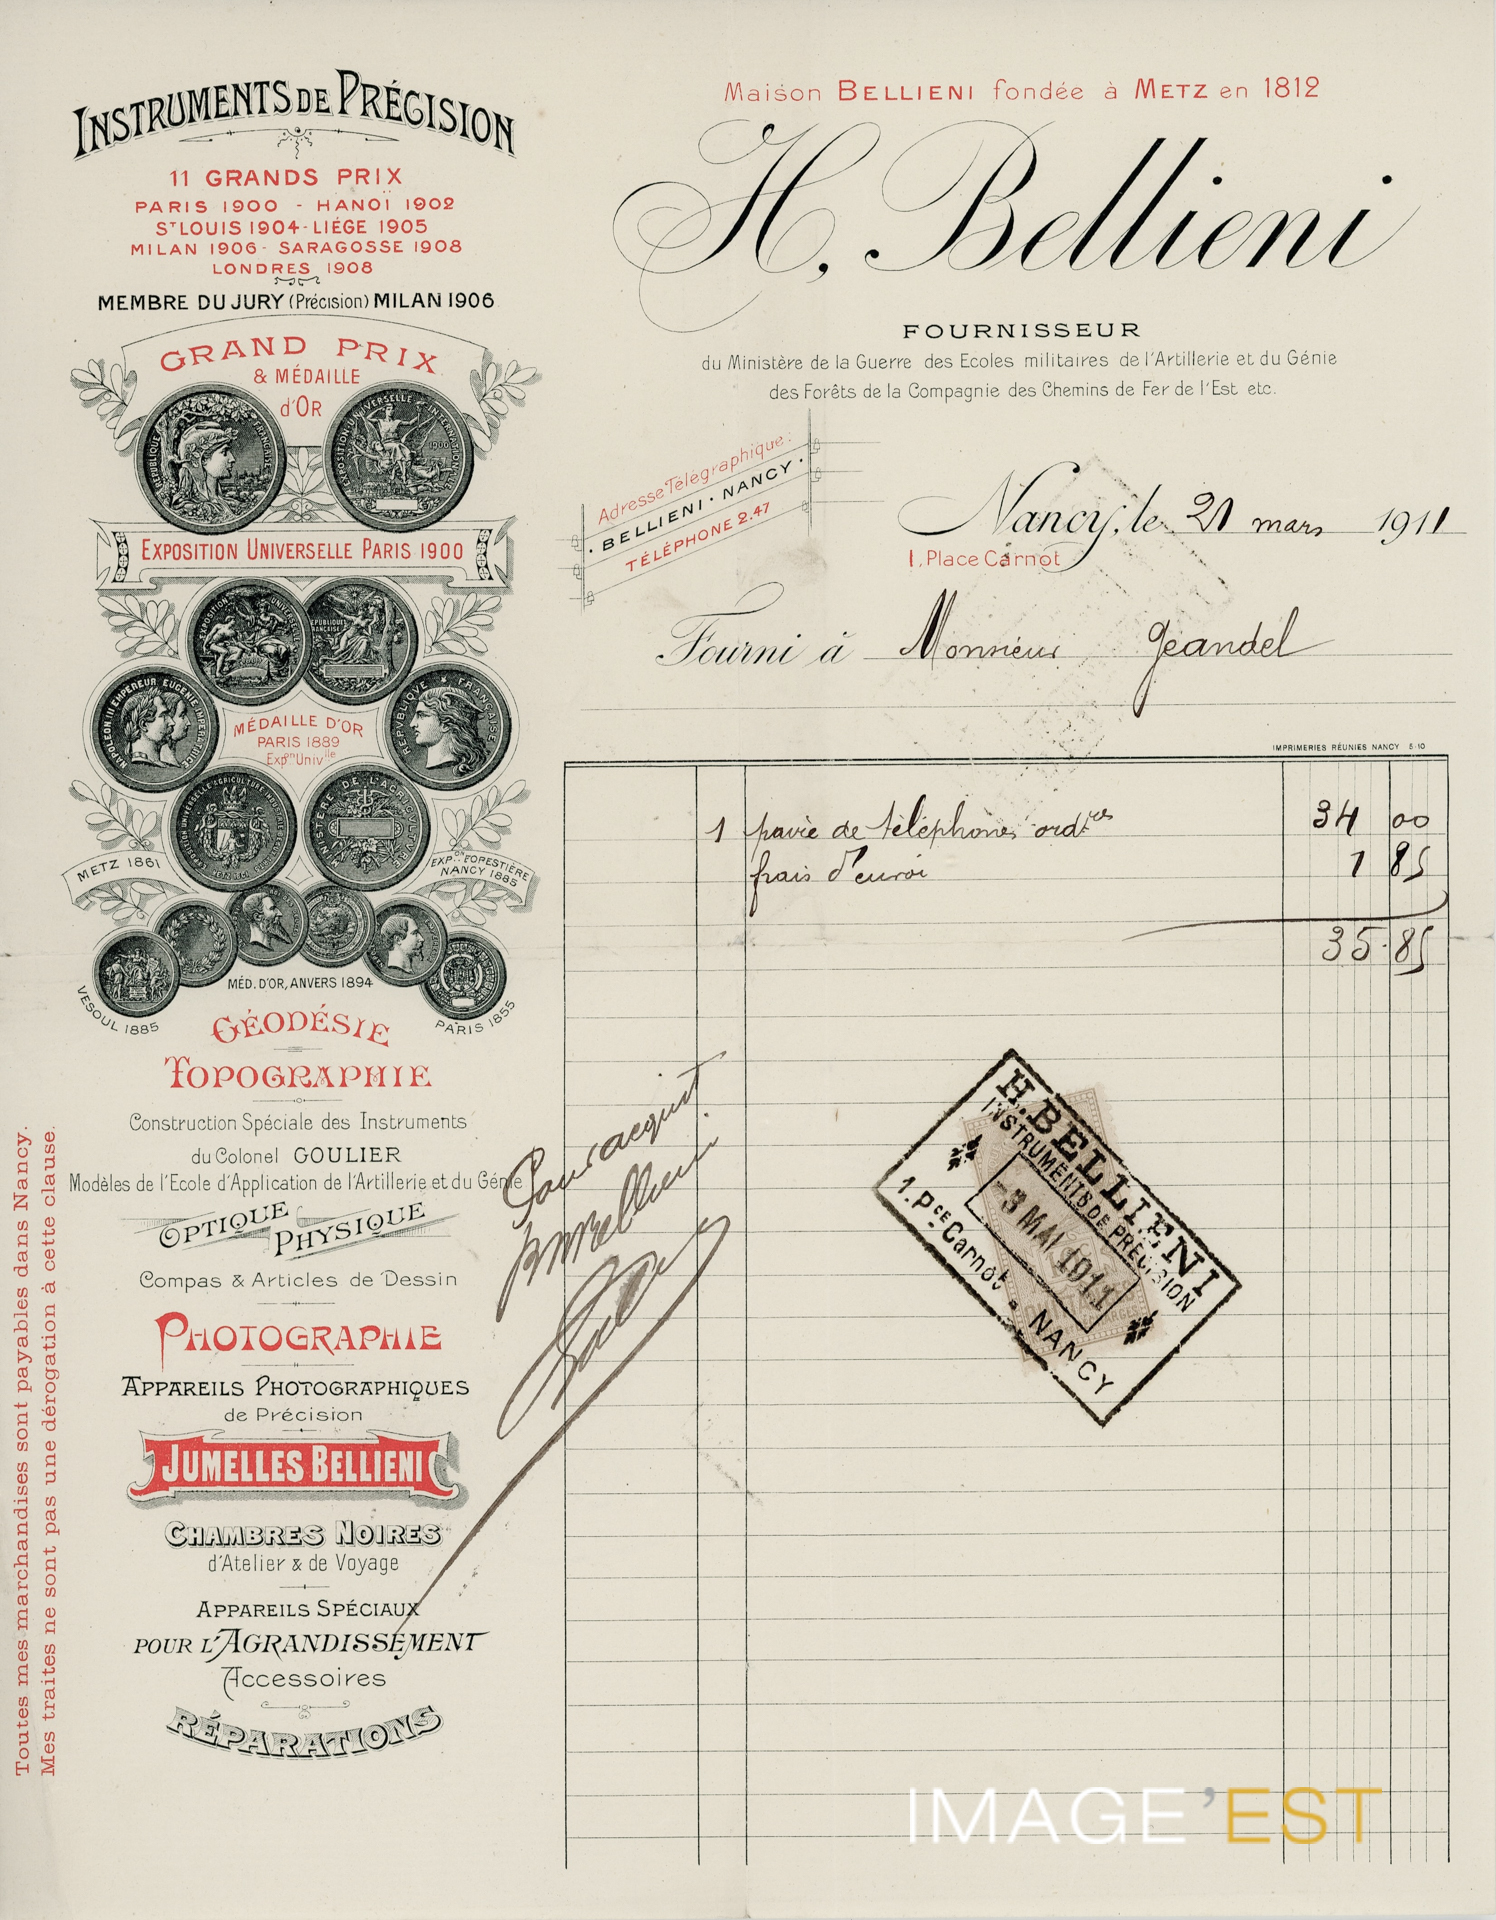 INSTRUMENTS DE PRÉCISION
11 GRANDS PRIX
PARIS 1900 - HANOÏ 1902
ST LOUIS 1904 - LIÉGE 1905
MILAN 1906 - SARAGOSSE 1908
LONDRES 1908
MEMBRE DU JURY (Précision) MILAN 1906
GRAND PRIX
& MÉDAILLE
d'OR
RÉPUBLIQUE FRANÇAISE
EXPOSITION UNIVERSELLE INTERNATIONALE 1900
EXPOSITION UNIVERSELLE PARIS 1900
EXPOSITION UNIVERSELLE
RÉPUBLIQUE FRANÇAISE
NAPOLEON III EMPEREUR EUGENIE IMPERATRICE
MÉDAILLE D'OR
PARIS 1889
Expon Univlle
REPVBLIQVE FRANÇAISE
MINISTERE DE L'AGRICVLTVRE
METZ 1861
EXPon FORESTIÈRE
NANCY 1885
MÉD. D'OR, ANVERS 1894
VESOUL 1885
PARIS 1855
GÉODÉSIE
TOPOGRAPHIE
Construction Spéciale des Instruments
du Colonel GOULIER
Modèles de l'Ecole d'Application de l'Artillerie et du Génie
OPTIQUE
PHYSIQUE
Compas & Articles de Dessin
PHOTOGRAPHIE
APPAREILS PHOTOGRAPHIQUES
de Précision
JUMELLES BELLIENI
CHAMBRES NOIRES
d'Atelier & de Voyage
APPAREILS SPÉCIAUX
POUR L'AGRANDISSEMENT
Accessoires
RÉPARATIONS
Toutes mes marchandises sont payables dans Nancy.
Mes traites ne sont pas une dérogation à cette clause.
Maison BELLIENI fondée à METZ en 1812
H. Bellieni
FOURNISSEUR
du Ministère de la Guerre des Ecoles militaires de l'Artillerie et du Génie
des Forêts de la Compagnie des Chemins de Fer de l'Est etc.
Adresse Télégraphique:
BELLIENI · NANCY
TÉLÉPHONE 2.47
Nancy, le 21 mars 1911
1, Place Carnot
Fourni à Monsieur Geandel
IMPRIMERIES RÉUNIES NANCY 5-10
1 paire de téléphones ordres 34 00
frais d'envoi 1 85
35.85
Pour acquit
Bellieni
H. BELLIENI
INSTRUMENTS DE PRÉCISION
-3 MAI 1911
1. Pce Carnot
NANCY
IMAGE'EST